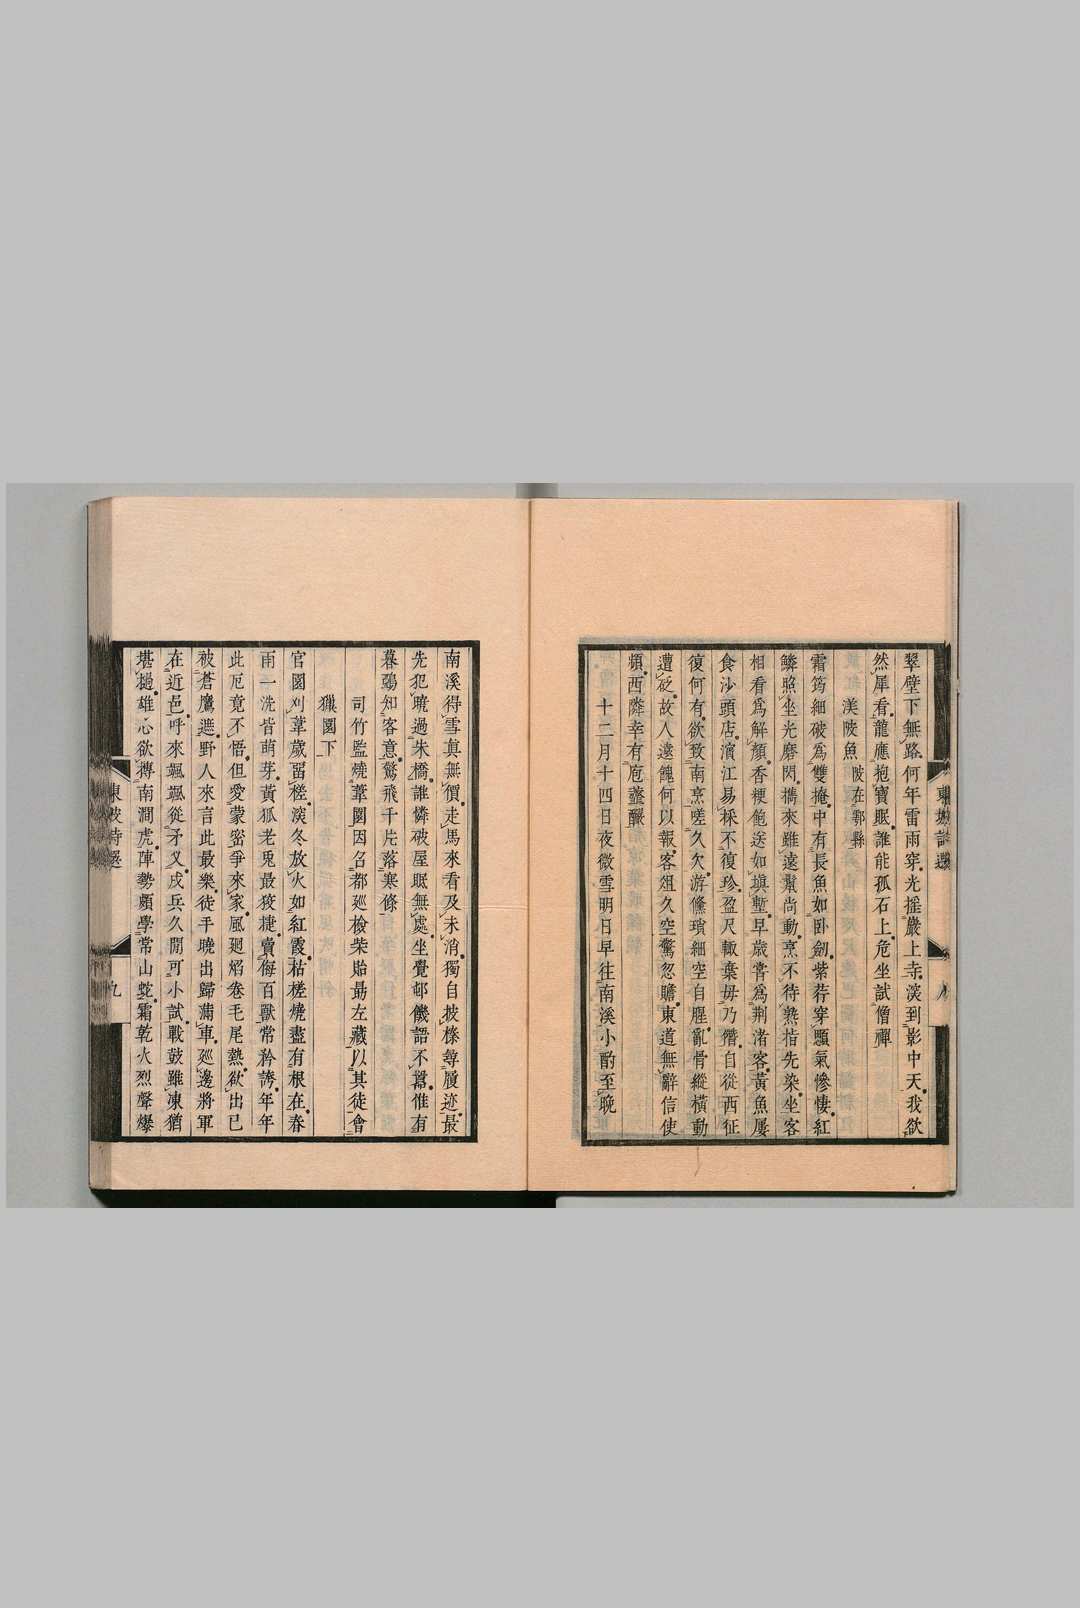 翠壁下無路何年雷雨穿光搖巖上寺深到影中天我欲
然犀看龍應抱寶眠誰能孤石上危坐試僧禪
渼陂魚 陂在鄠縣
霜筠細破爲雙掩中有長魚如卧劒紫荇穿顋氣慘悽紅
鱗照坐光磨閃攜來雖遠鬣尚動烹不待熟指先染坐客
相看爲解顏香粳飽送如塡塹早歲嘗爲荆渚客黃魚屢
食沙頭店濱江易採不復珍盈尺輙棄毋乃僭自從西征
復何有欲致南烹嗟久欠游儵瑣細空自腥亂骨縱橫動
遭砭故人遠饋何以報客俎久空驚忽贍東道無辭信使
頻西鄰幸有庖虀釅
十二月十四日夜微雪明日早往南溪小酌至晚
東坡詩選
八
南溪得雪眞無價走馬來看及未消獨自披榛尋履迹最
先犯曉過朱橋誰憐破屋眠無處坐覺邨饑語不囂惟有
暮鴉知客意驚飛千片落寒條
司竹監燒葦園因召都廵檢柴貽勗左藏以其徒會
獵園下
官園刈葦歲留槎深冬放火如紅霞枯槎燒盡有根在春
雨一洗皆萌芽黃狐老兎最狡捷賣侮百獸常矜誇年年
此厄竟不悟但愛蒙密爭來家風廻焰卷毛尾熱欲出已
被蒼鷹遮野人來言此最樂徒手曉出歸滿車廵邊將軍
在近邑呼來颯颯從矛叉戍兵久閒可小試戰鼓雖凍猶
堪撾雄心欲搏南澗虎陣勢頗學常山蛇霜乾火烈聲爆
東坡詩選
九